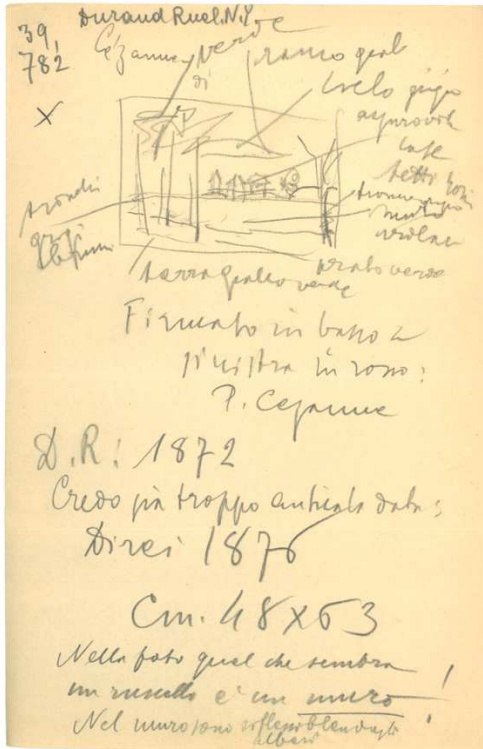 Durand Ruel. N.Y.
39,
782
Cézanne
verde
di
X
ramo giallo
cielo grigio
case
tetti rossi
tronchi
grigi
prato verde
terra giallo verde
Firmato in basso a
sinistra in rosso:
P. Cezanne
D.R: 1872
Credo sia troppo anticata data:
Direi 1876
Cm. 48X63
Nella foto quel che sembra
un ruscello e' un muro!
Nel muro sono riflessi blu degli
alberi